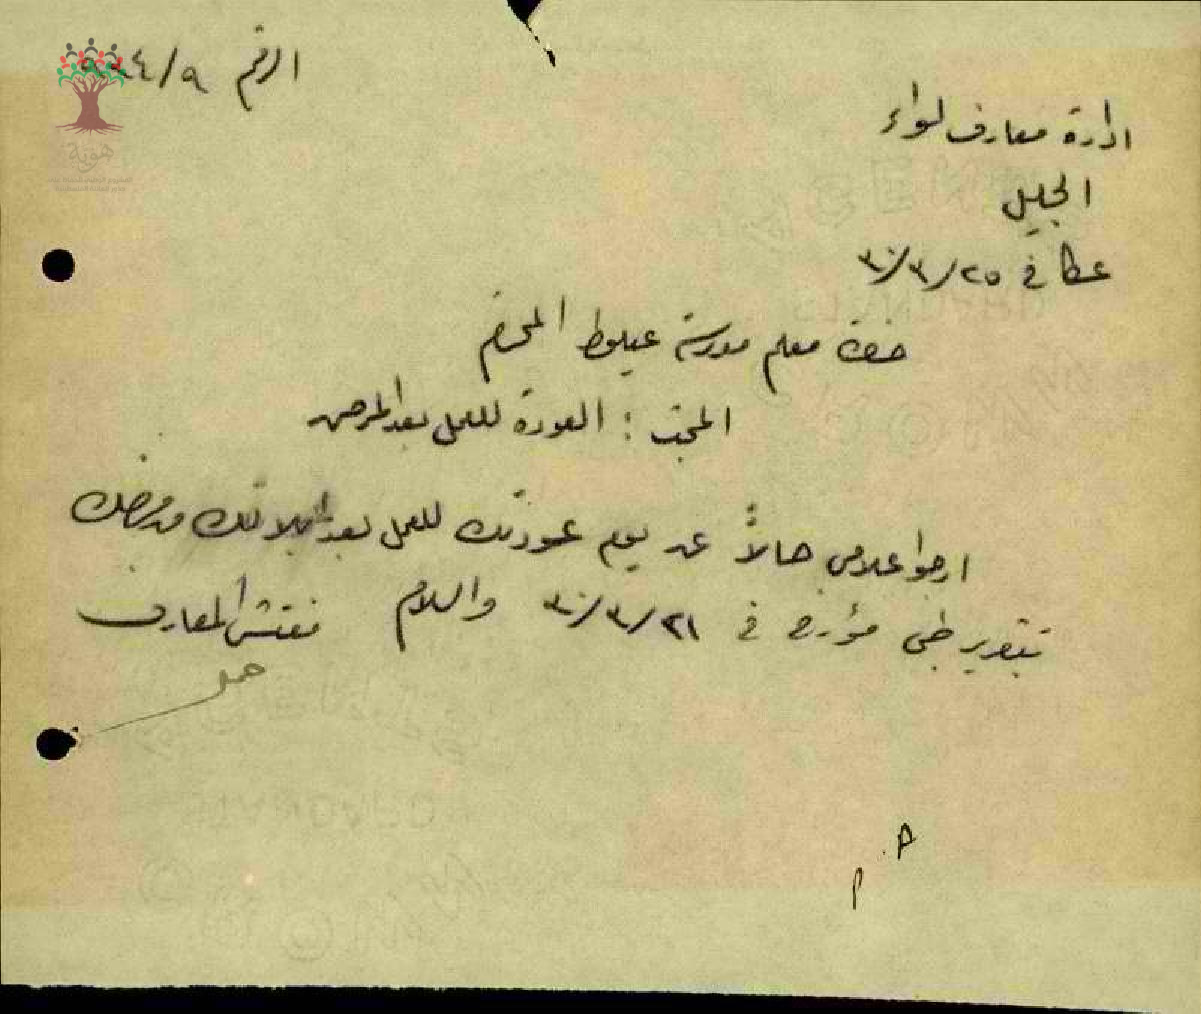 الرقم ٩/٩٩٤
ادارة معارف لواء
الجليل
عكا في ٢٥/٣/٤٠
حضرة معلم مدرسة عيلوط المحترم
المبحث : العودة للعمل بعد المرض
ارجو اعلامي حالاً عن يوم عودتك للعمل بعد ابلالك من مرضك
بتقرير طبي مؤرخ في ٢١/٣/٤٠ والسلام مفتش المعارف
هوية